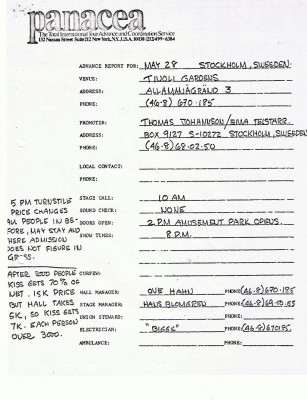 panacea
The Total International Tour Advance and Coordination Service
132 Nassau Street Suite 212 New York, N.Y., U.S.A. 10038 (212) 499-6384
ADVANCE REPORT FOR: MAY 28 STOCKHOLM, SWEEDEN
VENUE: TIVOLI GARDENS
ADDRESS: ALLAMANAGRAND 3
PHONE: (46-8) 670-185
PROMOTER: THOMAS JOHANNSON/EMA TELSTARR.
ADDRESS: BOX 9127 S-10272 STOCKHOLM, SWEEDEN
PHONE: (46-8) 68-02-50
LOCAL CONTACT:
PHONE:
STAGE CALL: 10 AM
SOUND CHECK: NONE
DOORS OPEN: 2 P.M AMUSEMENT PARK OPENS.
SHOW TIMES: 8 P.M.
5 PM TURNSTILE
PRICE CHANGES
ALL PEOPLE IN BE-
FORE, MAY STAY AND
HERE ADMISSION
DOES NOT FIGURE IN
GROSS.
AFTER 3000 PEOPLE
KISS GETS 70% OF
NET. 15K PRICE
BUT HALL TAKES
5K, SO KISS GETS
7K. EACH PERSON
OVER 3000.
CURFEW:
HALL MANAGER: OVE HAHN PHONE: (46-8) 670-185
STAGE MANAGER: HANS BLOMGREN PHONE: (46-8)
UNION STEWARD: PHONE:
ELECTRICIAN: PHONE: (46-8) 670185
AMBULANCE: PHONE: